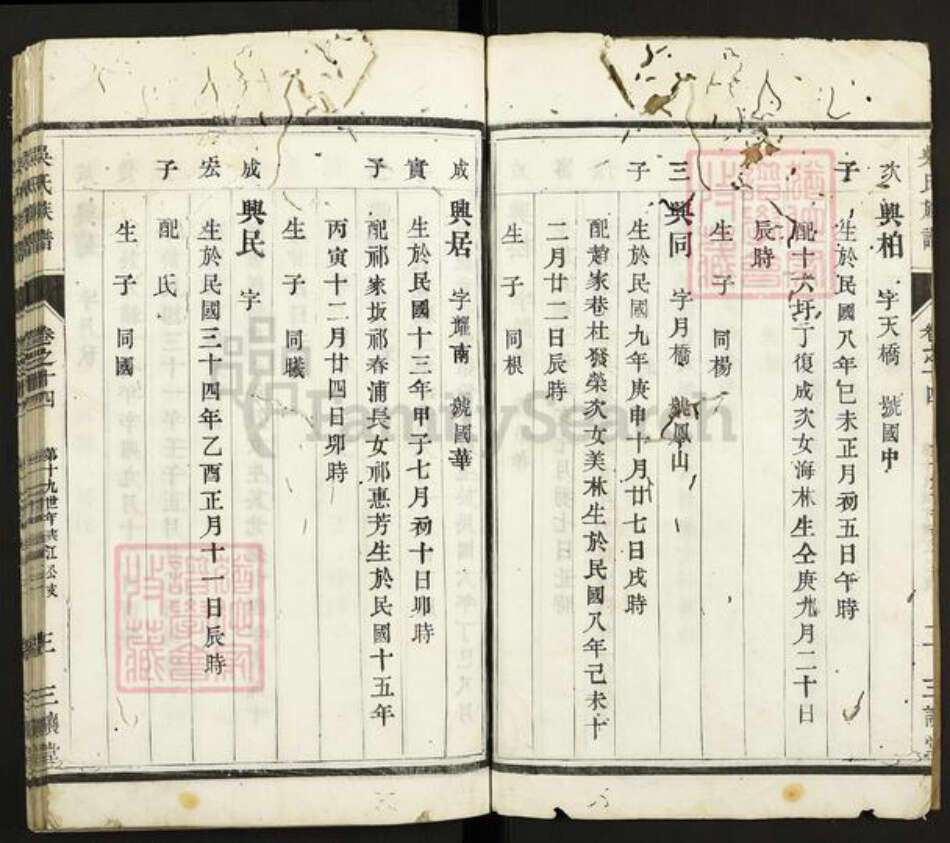 次子 興柏 字天橋 號國中
生於民國八年己未正月初五日午時
配十六圩丁復成次女海林生仝庚九月二十日
辰時
生子 同楊
三子 興同 字月橋 號鳳山
生於民國九年庚申十月廿七日戌時
配趙家巷杜發榮次女美林生於民國八年己未十
二月廿二日辰時
生子 同根
成實子 興居 字耀南 號國華
生於民國十三年甲子七月初十日卯時
配祁家坂祁春浦長女祁惠芳生於民國十五年
丙寅十二月廿四日卯時
生子 同曦
成宏子 興民 字
生於民國三十四年乙酉正月十一日辰時
配氏
生子 同國
吳氏族譜 卷之十四 第十九世 三讓堂
FamilySearch